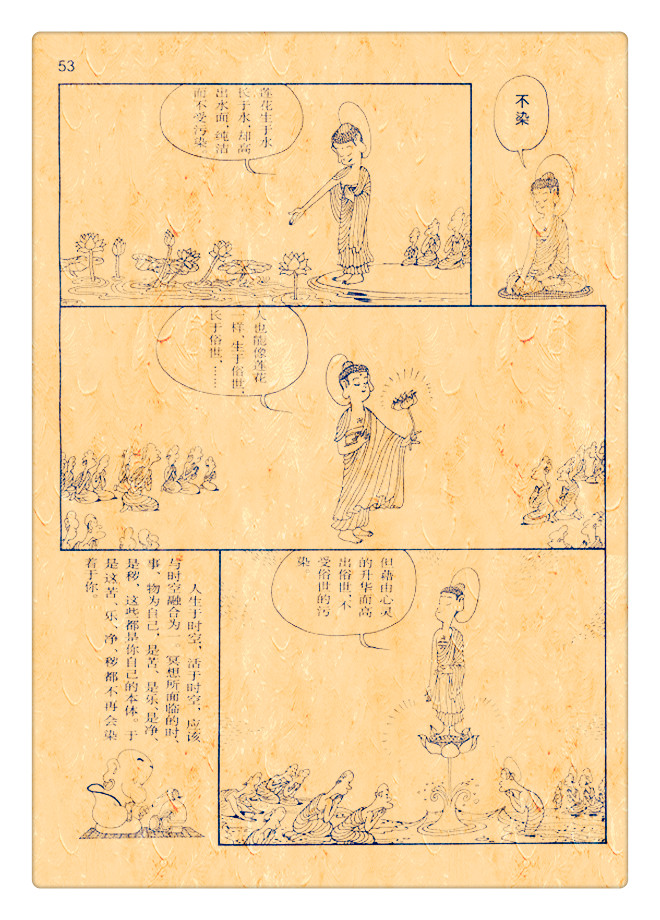 53
不染
莲花生于水
长于水,却高
出水面,纯洁
而不受污染。
人也能像莲花
一样,生于俗世,
长于俗世,……
但藉由心灵
的升华而高
出俗世,不
受俗世的污
染
人生于时空,活于时空,应该
与时空融合为一 冥想所面临的时、
事、物为自己,是苦、是乐、是净、
是秽,这些都是你自己的本体。于
是这苦、乐、净、秽都不再会染
着于你。